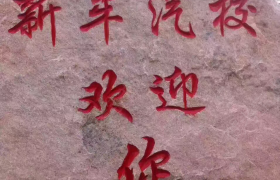 新 汽校
欢迎
你